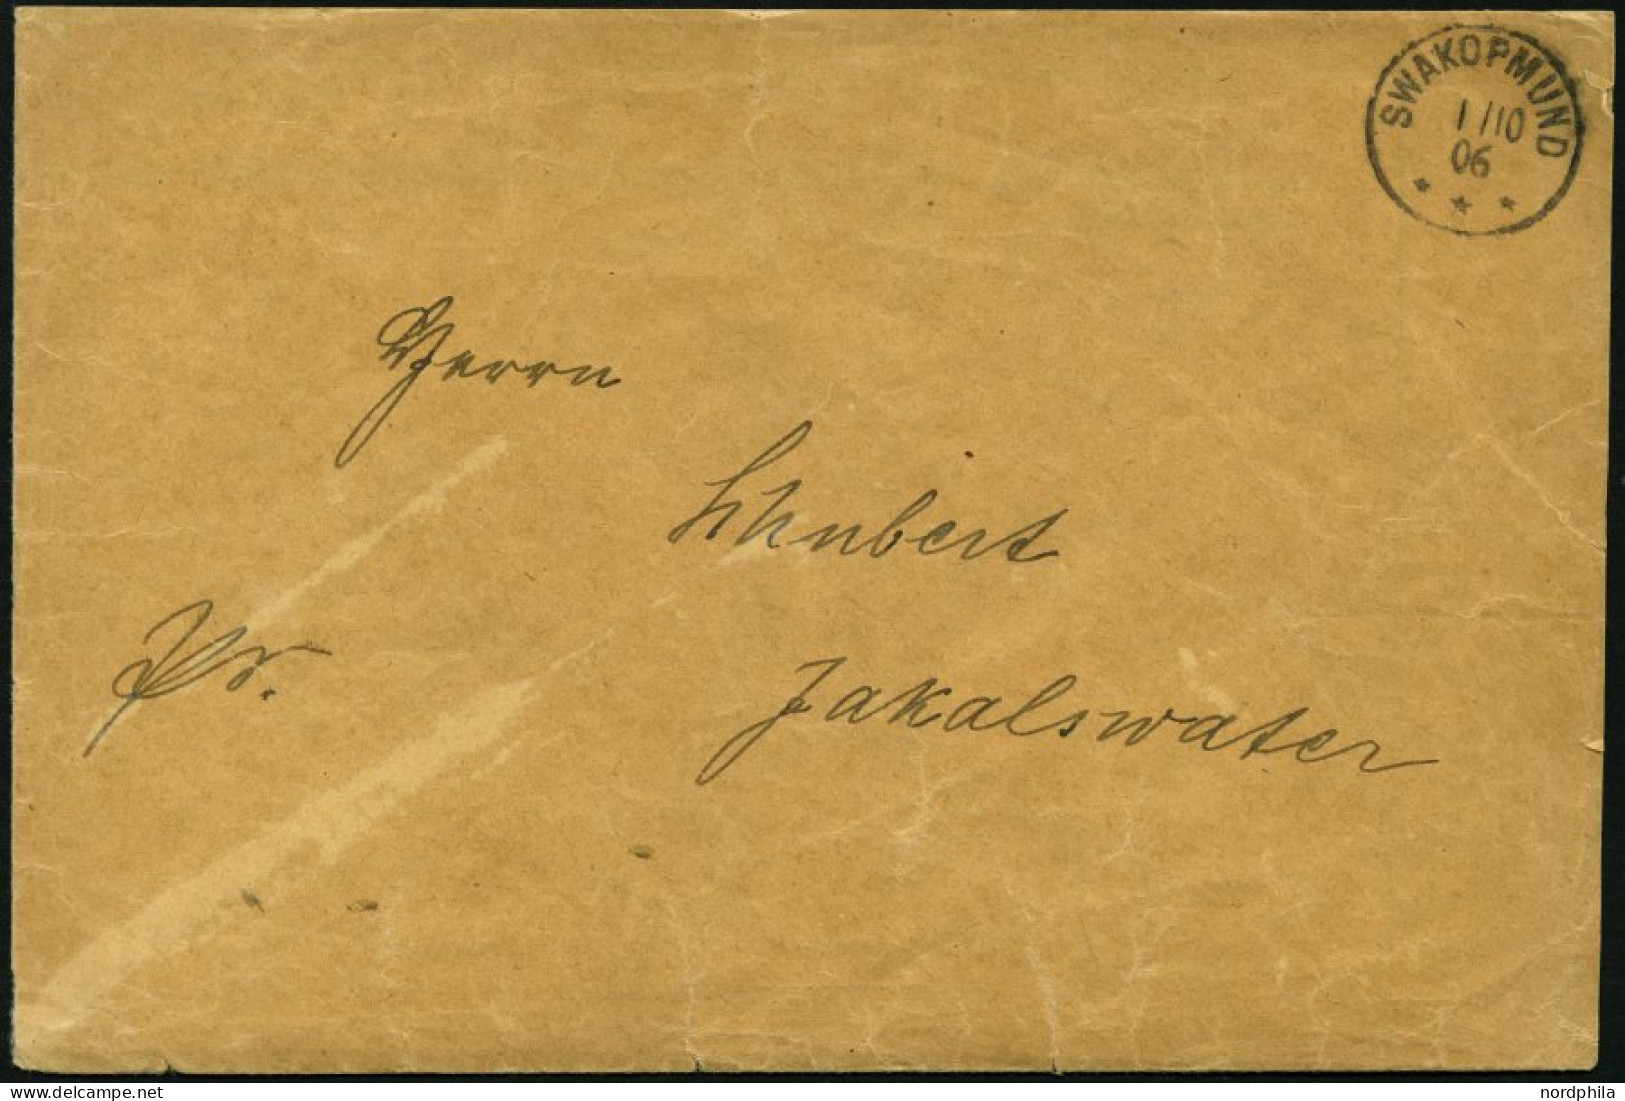 SWAKOPMUND
1/10
06
* * *
Herrn
Schubert
Pr.
Jakalswater
nordphila